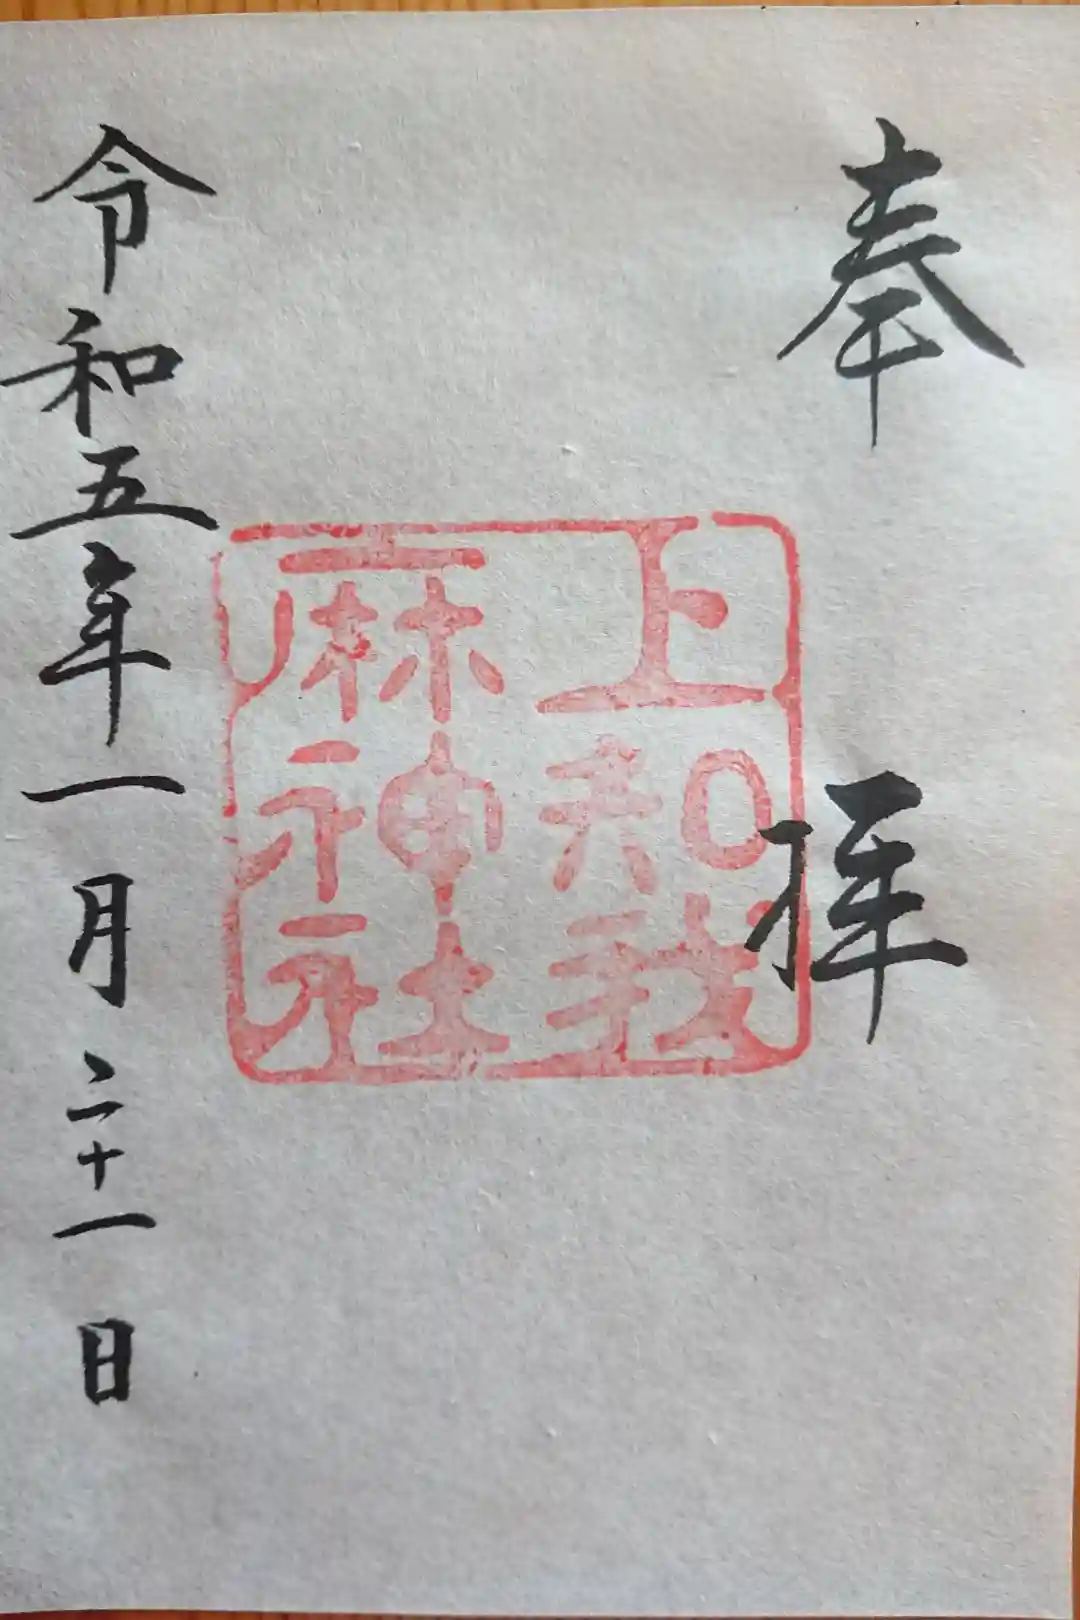 奉拝
上知我
麻神社
令和五年一月二十一日